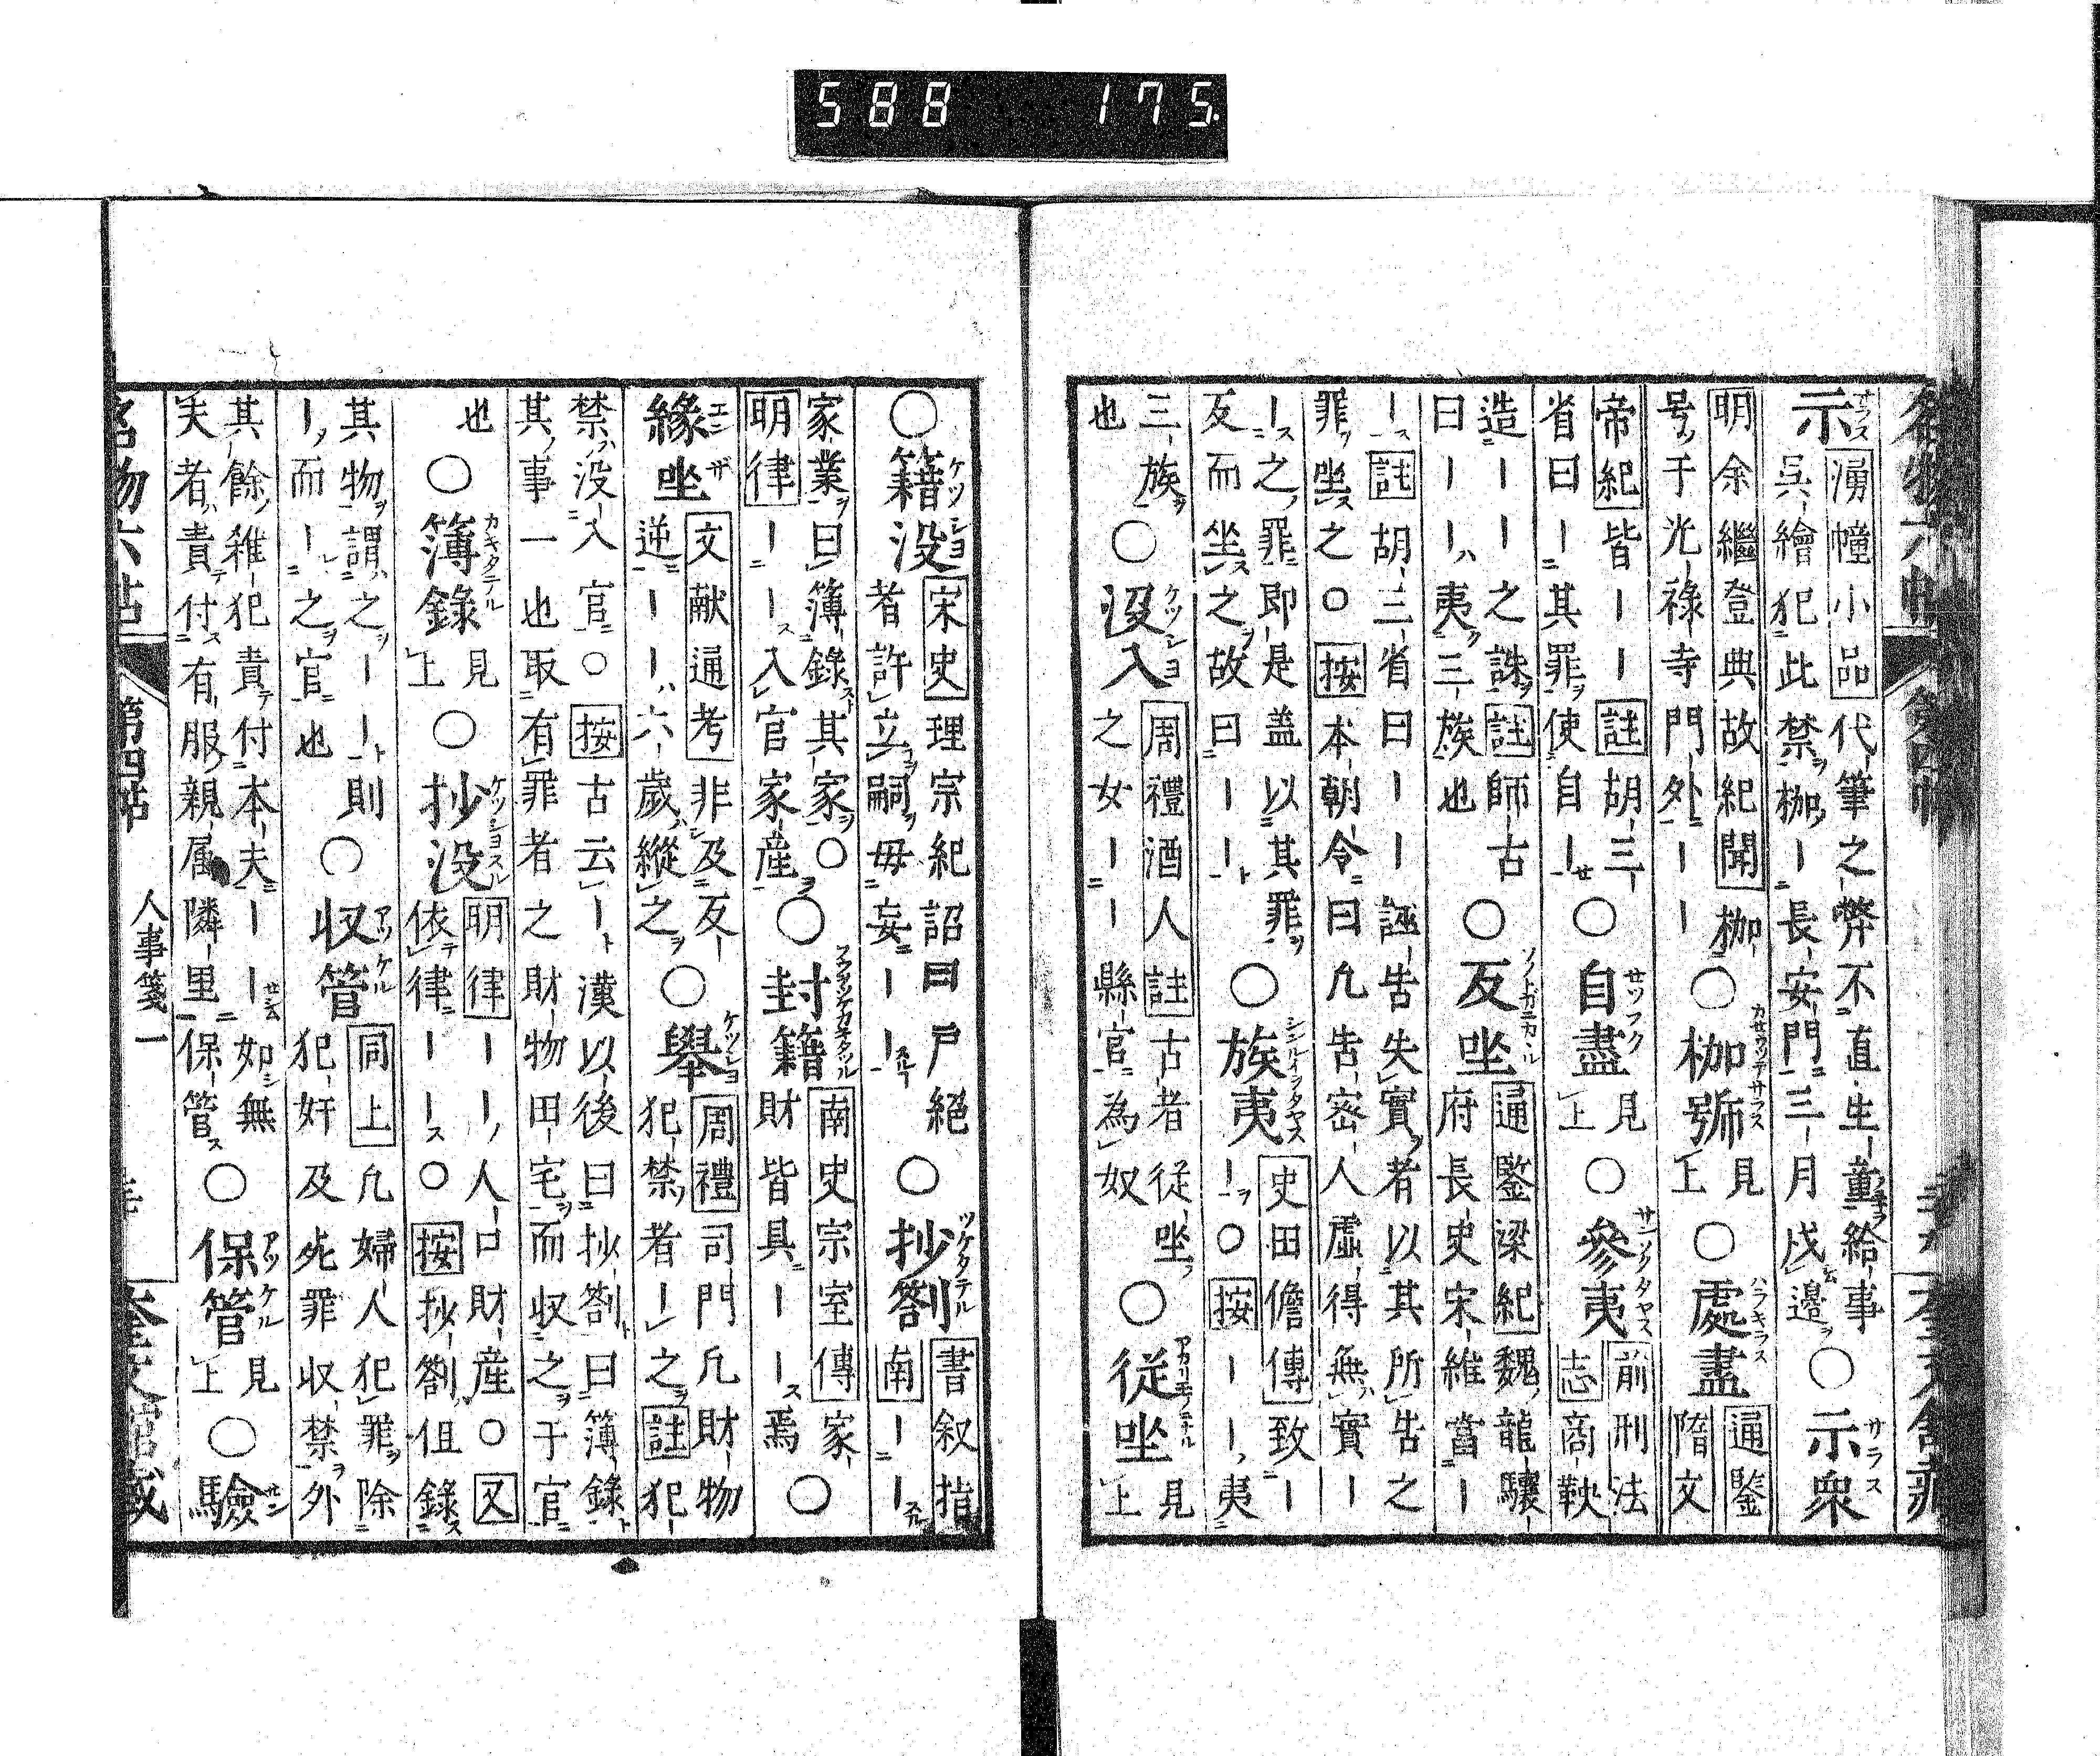 588 175.
示 湧幢小品 代筆之弊不直生童給事
呉繪犯此禁枷ー長安門三月戍邊 ○示衆
明余繼登典故紀聞 枷
号于光祿寺門外ーー ○枷號 見上 ○處盡 通鑒
隋文
帝紀 皆ーー 註 胡三
省曰ー其罪使自ー ○自盡 見上 ○參夷 前刑法
志 商鞅
造ーー之誅 註 師古
曰ーーー夷三族也 ○反坐 通鑒梁紀 魏龍驤
府長史宋維當ー
ー 註 胡三省曰ーー誣告失實者以其所告之
罪坐之○ 按 本朝令曰凡告密人虛得無實ー
ー之罪即是盖以其罪
反而坐之故曰ーー ○族夷 史田儋傳 致ー
ー○ 按 ーー夷
三族
也 ○沒入 周禮酒人 註 古者従坐
之女ーー縣官為奴 ○従坐 見上
○籍没 宋史 理宗紀 詔曰戸絕
者許立嗣毋妄ーー ○抄劄 書叙指
南 ーー
家業曰簿錄其家○ ○封籍 南史宗室傳 家
財皆具ーー焉 ○
明律 ーー入官家産
緣坐 文献通考 非及反
逆ーー六歲縱之 ○舉 周禮 司門凡財物
犯禁者ー之 註 犯
禁没入官○ 按 古云ー漢以後曰抄劄曰簿錄
其事一也取有罪者之財物田宅而収之于官
也 ○簿錄 見上 ○抄没 明律 ーー人口財産○ 又
依律ーー○ 按 抄劄但錄
其物謂之ーー則
ー而ー之官也 ○収管 同上 凡婦人犯罪除
犯奸及死罪収禁外
其餘雜犯責付本夫ーー如無
夫者責付有服親屬隣里保管 ○保管 見上 ○驗
名物六帖 第四帖 人事箋一